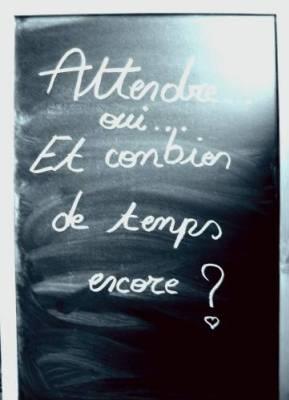 Attendre...
oui...
Et combien
de temps
encore ?